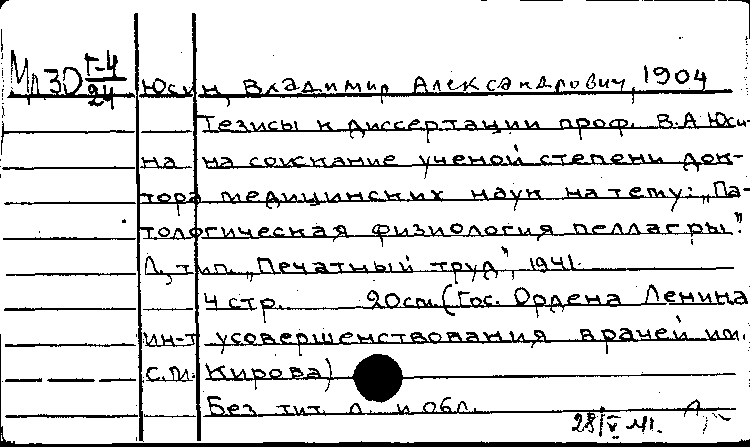 Мл30 Г-4/24
Юсин, Владимир Александрович, 1904
Тезисы к диссертации проф. В.А Юси-
на на соискание ученой степени док-
тора медицинских наук на тему: „Па-
тологическая физиология пеллагры".
Л., тип. „Печатный труд", 1941.
4 стр. 20см. (Гос. Ордена Ленина
ин-т усовершенствования врачей им.
С.М. Кирова)
Без тит. л. и обл.
28/V 41.